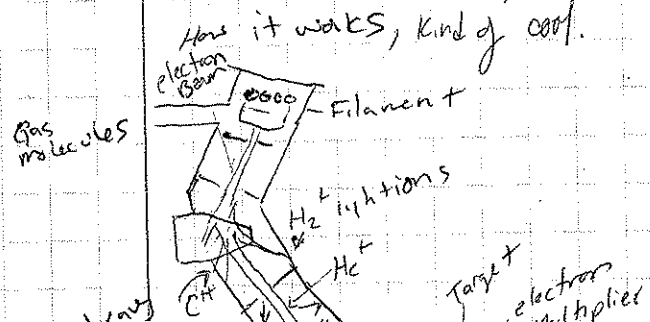 How it works, kind of cool.
electron
Beam
Filament
Gas
molecules
H2+ light ions
He+
CH
Target
electron
multiplier